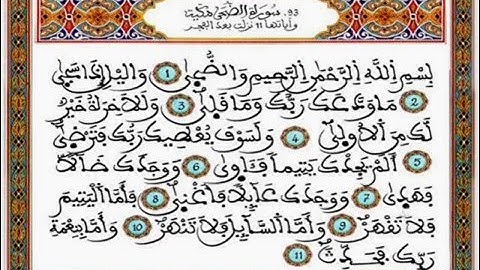 93. سورة الضحى مكية
وآياتها 11 نزلت بعد الفجر
بِسْمِ اللَّهِ الرَّحْمَٰنِ الرَّحِيمِ وَالضُّحَىٰ 1 وَالَّيْلِ إِذَا سَجَىٰ
2 مَا وَدَّعَكَ رَبُّكَ وَمَا قَلَىٰ 3 وَلَلَاخِرَةُ خَيْرٌ
لَّكَ مِنَ الُاولَىٰ 4 وَلَسَوْفَ يُعْطِيكَ رَبُّكَ فَتَرْضَىٰ
5 أَلَمْ يَجِدْكَ يَتِيمًا فَـَٔاوَىٰ 6 وَوَجَدَكَ ضَالًّا
فَهَدَىٰ 7 وَوَجَدَكَ عَائِلًا فَأَغْنَىٰ 8 فَأَمَّا الْيَتِيمَ
فَلَا تَقْهَرْ 9 وَأَمَّا السَّائِلَ فَلَا تَنْهَرْ 10 وَأَمَّا بِنِعْمَةِ
رَبِّكَ فَحَدِّثْ 11